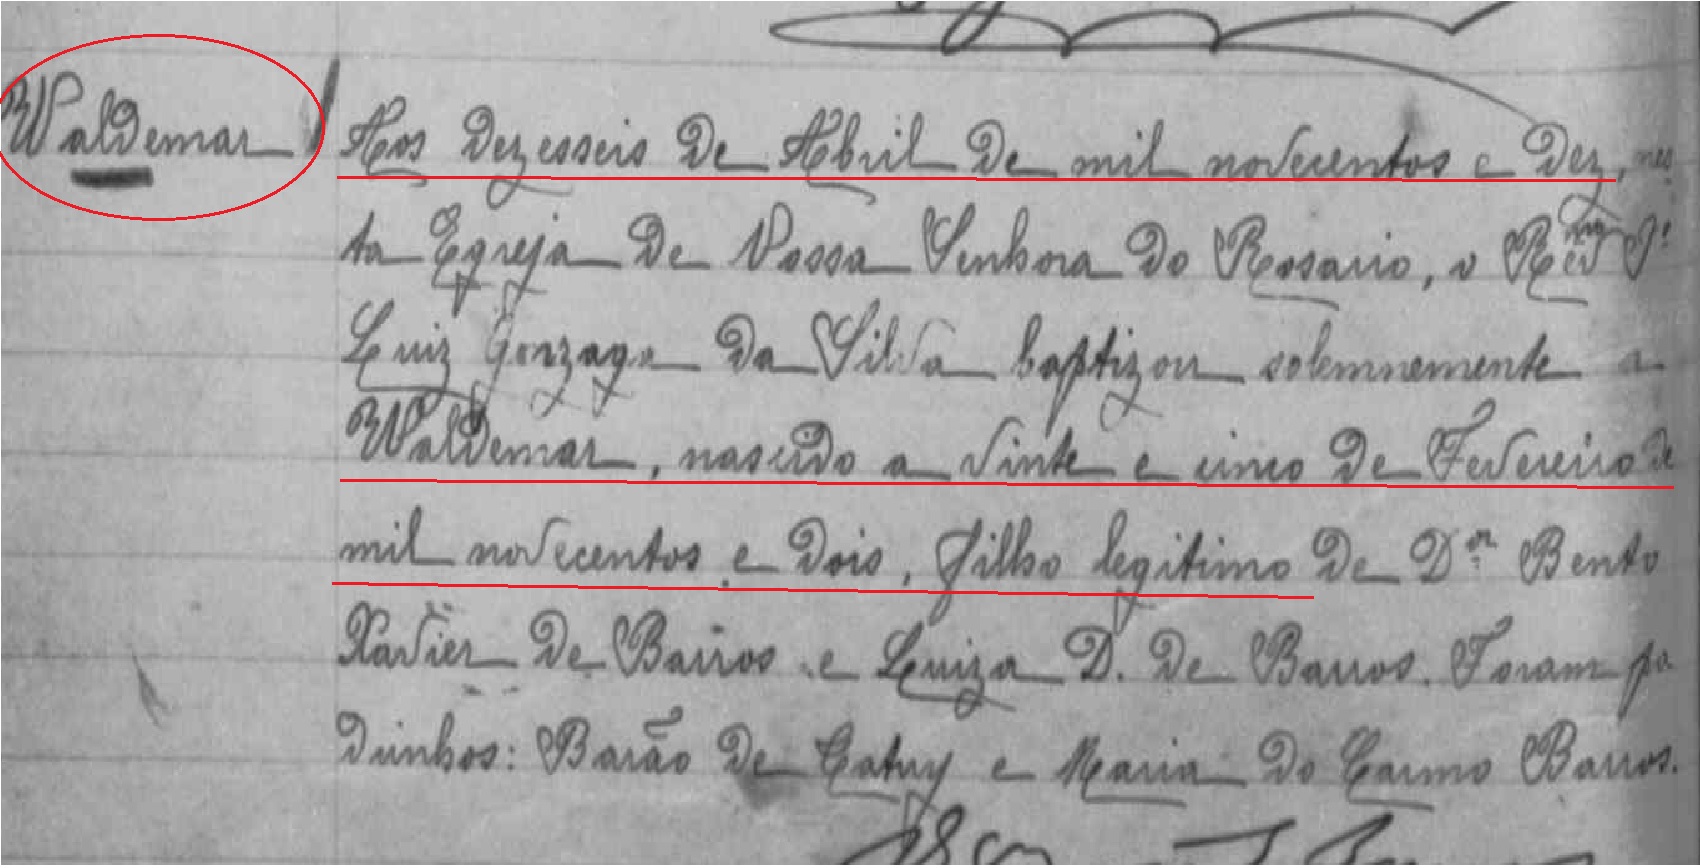 Waldemar
Aos dezesseis de Abril de mil novecentos e dez, nes
ta Egreja de Nossa Senhora do Rosario, o Revmo Pe
Luiz Gonzaga da Silva baptizou solemnemente a
Waldemar, nascido a vinte e cinco de Fevereiro de
mil novecentos e dois, filho legitimo de Dor Bento
Xavier de Barros e Luiza D. de Barros. Foram pa
drinhos: Barão de Catuy e Maria do Carmo Barros.